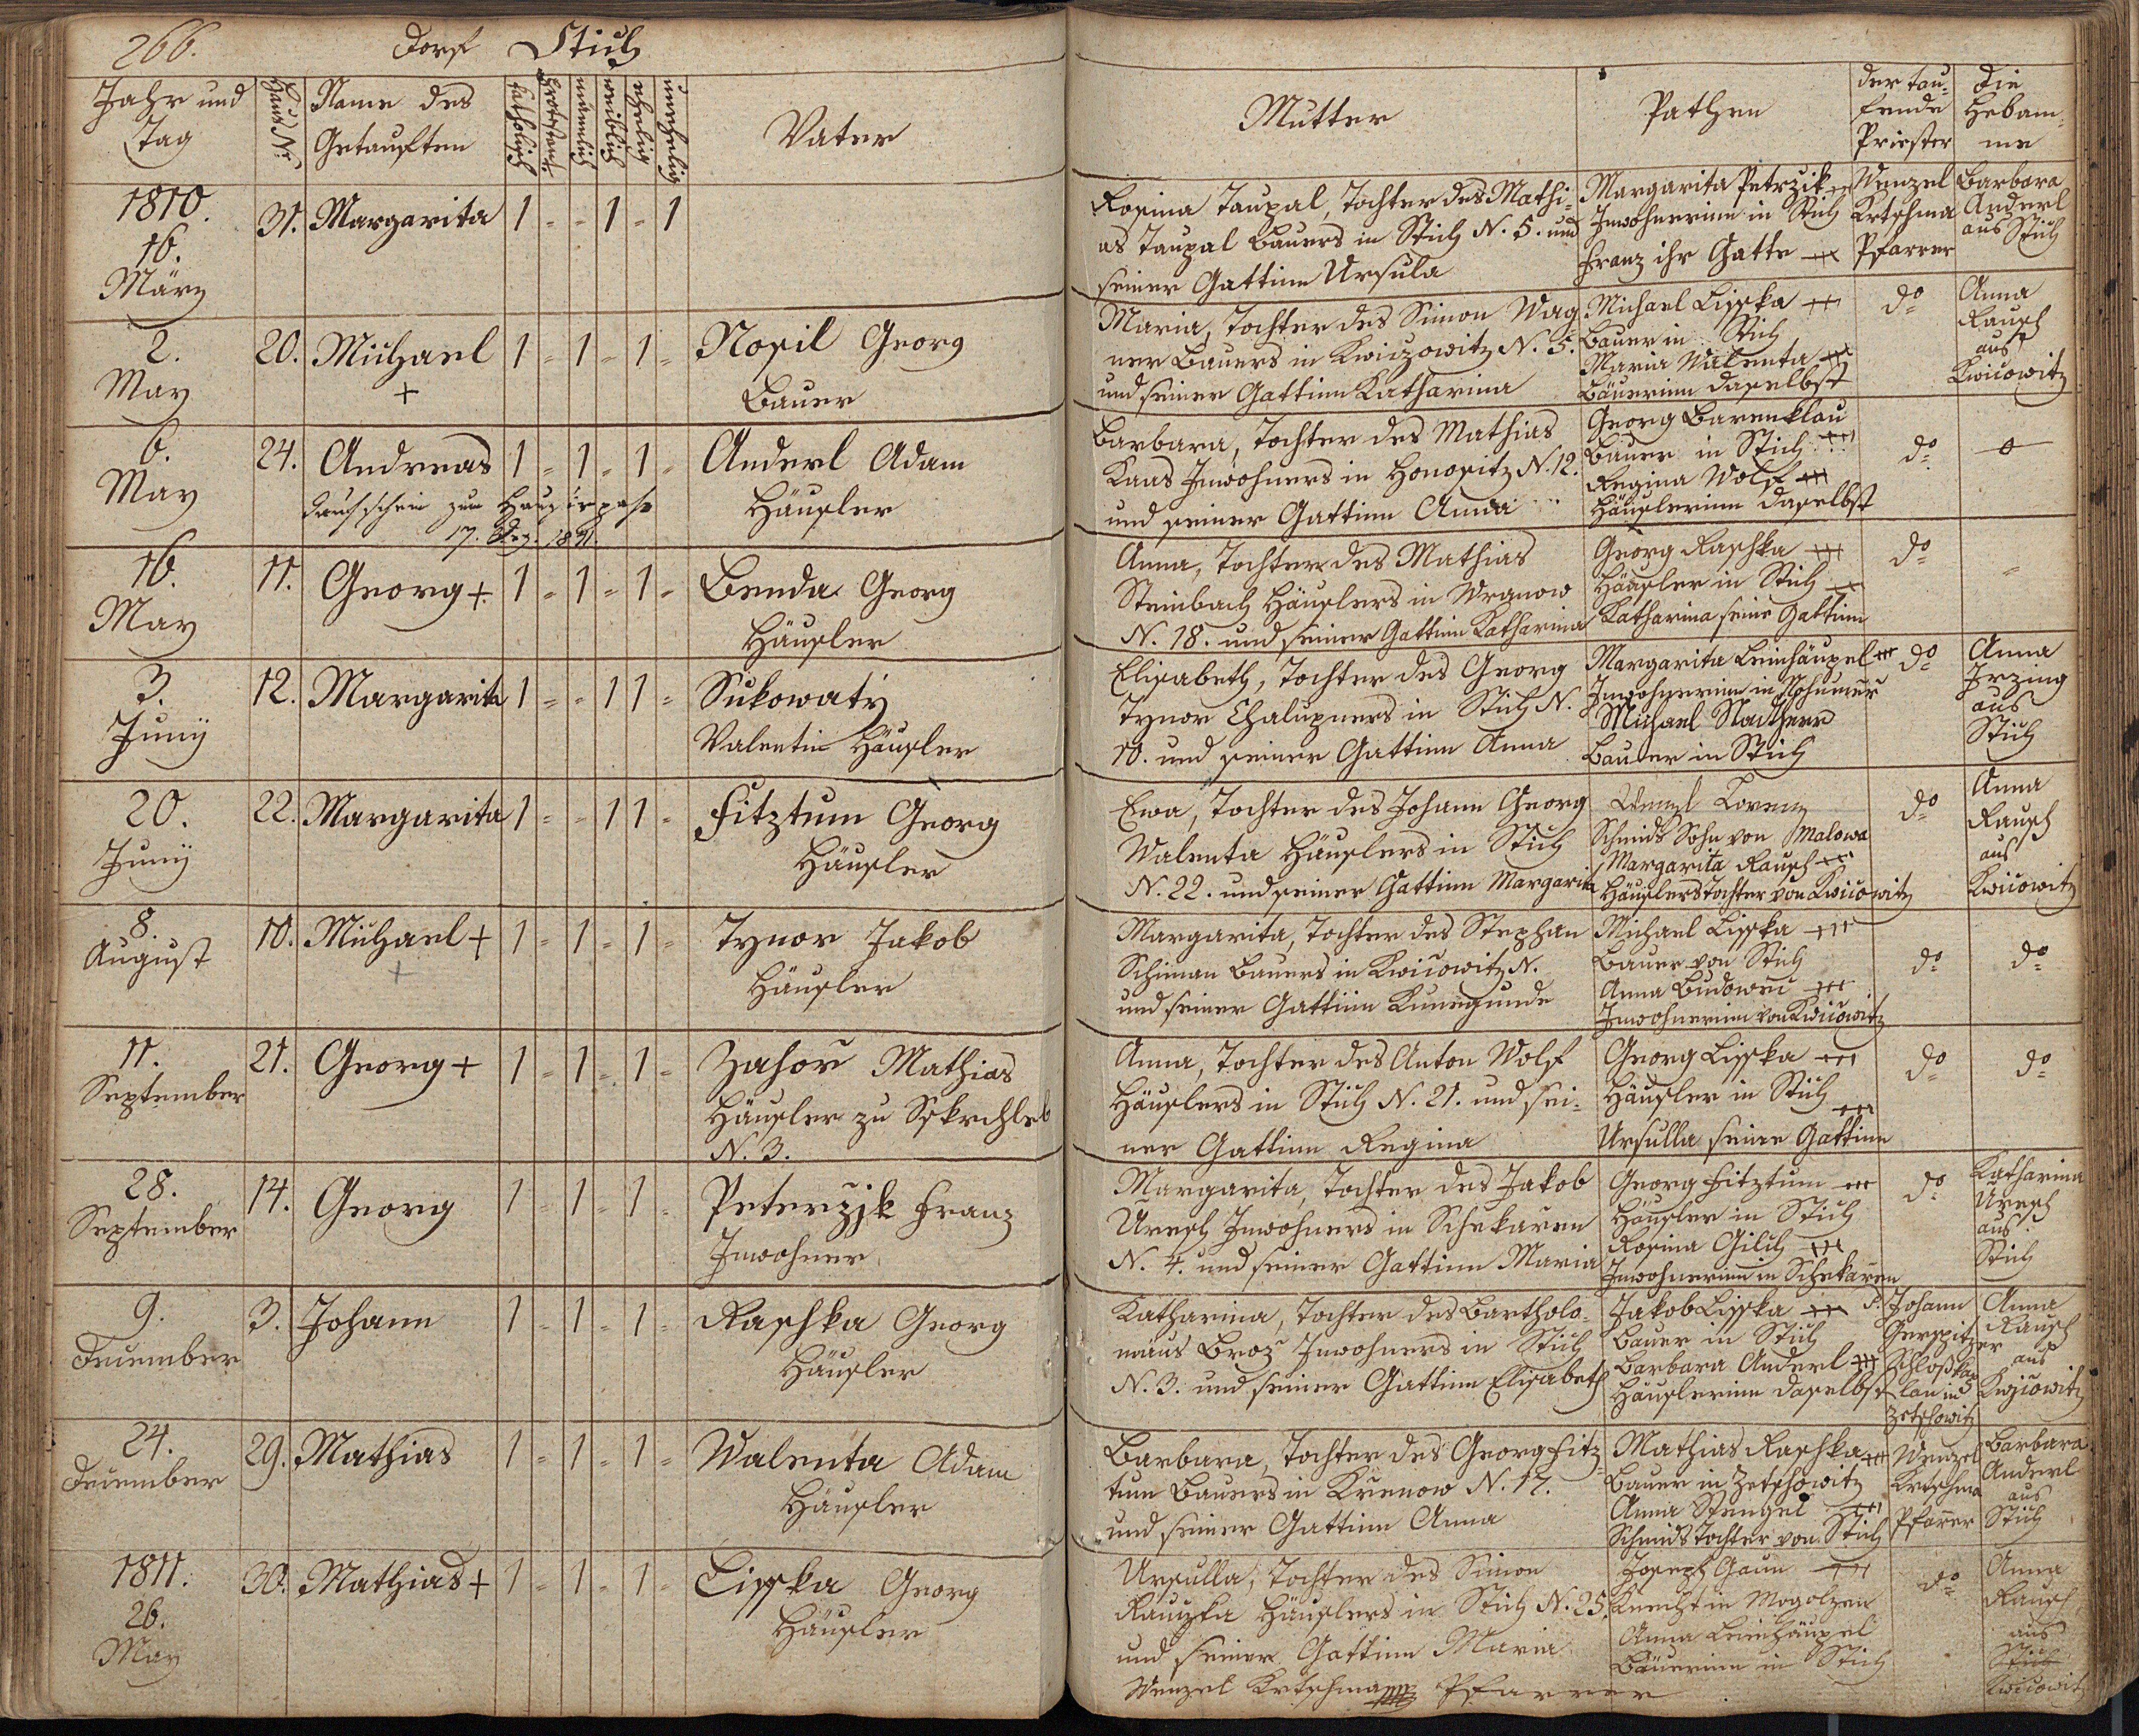 266. Dorf Stich
Jahr und
Tag
Haus N.
Name des
Getauften
katholisch
protestant.
männlich
weiblich
ehelig
unehelig
Vater
Mutter
Pathen
der tau-
fende
Priester
die
Hebam-
me
1810.
16.
März
31. Margarita 1 - - 1 - 1
Rosina Taupal, Tochter des Mathi-
as Taupal Bauers in Stich N. 5. und
seiner Gattinn Ursula
Margarita Petrzik +++
Inwohnerinn in Stich
Franz ihr Gatte +++
Wenzel
Krtschma
Pfarrer
Barbara
Anderl
aus Stich
2.
May
20. Michael 1 - 1 - 1 -
+
Nosil Georg
Bauer
Maria, Tochter des Simon Wag-
ner Bauers in Kwiczowitz N. 5.
und seiner Gattinn Katharina
Michael Lisska +++
Bauer in Stich
Maria Walenta +++
Bäuerinn daselbst
do
Anna
Rausch
aus
Kwicowitz
6.
May
24. Andreas 1 - 1 - 1 -
Taufschein zum
17. 1831.
Anderl Adam
Häusler
Barbara, Tochter des Mathias
Kaas Inwohners in Honositz N. 12.
und seiner Gattinn Anna
Georg Barenklau
Bauer in Stich +++
Regina Wolf +++
Häuslerinn daselbst
do
16.
May
11. Georg + 1 - 1 - 1 -
Benda Georg
Häusler
Anna, Tochter des Mathias
Steinbach Häuslers in Wranow
N. 18. und seiner Gattinn Katharina
Georg Raschka +++
Häusler in Stich
Katharina seine Gattinn
do
3.
Juny
12. Margarita 1 - - 1 1 -
Sukowaty
Valentin Häusler
Elisabeth, Tochter des Georg
Tynor Chalupners in Stich N.
10. und seiner Gattinn Anna
Margarita Leinhäupel +++
Inwohnerinn in
Michael Stadtherr
Bauer in Stich
do
Anna
Irzing
aus
Stich
20.
Juny
22. Margarita 1 - - 1 1 -
Fitztum Georg
Häusler
Ewa, Tochter des Johann Georg
Walenta Häuslers in Stich
N. 22. und seiner Gattinn Margarita
Wenzl Lorenz
Schmids Sohn von Malowa
Margarita Rausch +++
Häuslers Tochter von Kwicowitz
do
Anna
Rausch
aus
Kwicowitz
8.
August
10. Michael + 1 - 1 - 1 -
+
Tynor Jakob
Häusler
Margarita, Tochter des Stephan
Schiman Bauers in Kwicowitz N.
und seiner Gattinn Kunegunde
Michael Lisska +++
Bauer von Stich
Anna +++
Inwohnerinn von Kwicowitz
do
do
11.
September
21. Georg + 1 - 1 - 1 -
Zahoř Mathias
Häusler zu Sskrchleb
N. 3.
Anna, Tochter des Anton Wolf
Häuslers in Stich N. 21. und sei-
ner Gattinn Regina
Georg Lisska +++
Häusler in Stich
Ursulla seine Gattinn +++
do
do
28.
September
14. Georg 1 - 1 - 1 -
Peterzjk Franz
Inwohner
Margarita, Tochter des Jakob
Uresch Inwohners in Schekaren
N. 4. und seiner Gattinn Maria
Georg Fitztum +++
Häusler in Stich
Rosina Gilch +++
Inwohnerinn in Schekaren
do
Katharina
Uresch
aus
Stich
9.
December
3. Johann 1 - 1 - 1 -
Raschka Georg
Häusler
Katharina, Tochter des Bartholo-
mäus Brož Inwohners in Stich
N. 3. und seiner Gattinn Elisabeth
Jakob Lisska +++
Bauer in Stich
Barbara Anderl +++
Häuslerinn daselbst
P. Johann
Gerspitzer
Schloßkap
lan in
Zetschowitz
Anna
Rausch
aus
Kwjcowitz
24.
December
29. Mathias 1 - 1 - 1 -
Walenta Adam
Häusler
Barbara, Tochter des Georg Fitz-
tum Bauers in Krenow N. 17.
und seiner Gattinn Anna
Mathias Raschka +++
Bauer in Zetschowitz
Anna Stengel +++
Schmids Tochter von Stich
Wenzel
Krtschma
Pfarrer
Barbara
Anderl
aus
Stich
1811.
26.
May
30. Mathias + 1 - 1 - 1 -
Lisska Georg
Häusler
Ursulla, Tochter des Simon
Rauczka Häuslers in Stich N. 25.
und seiner Gattinn Maria
Wenzel Krtschma Pfarrer
Joseph Gaun +++
Knecht in Mogolzen
Anna Leinhäupel
Bäuerinn in Stich
do
Anna
Rausch
aus
Stich
Kwicowitz